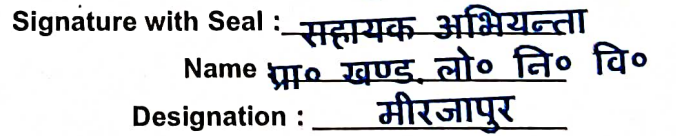 Signature with Seal : सहायक अभियन्ता
Name प्रा० खण्ड, लो० नि० वि०
Designation : मीरजापुर